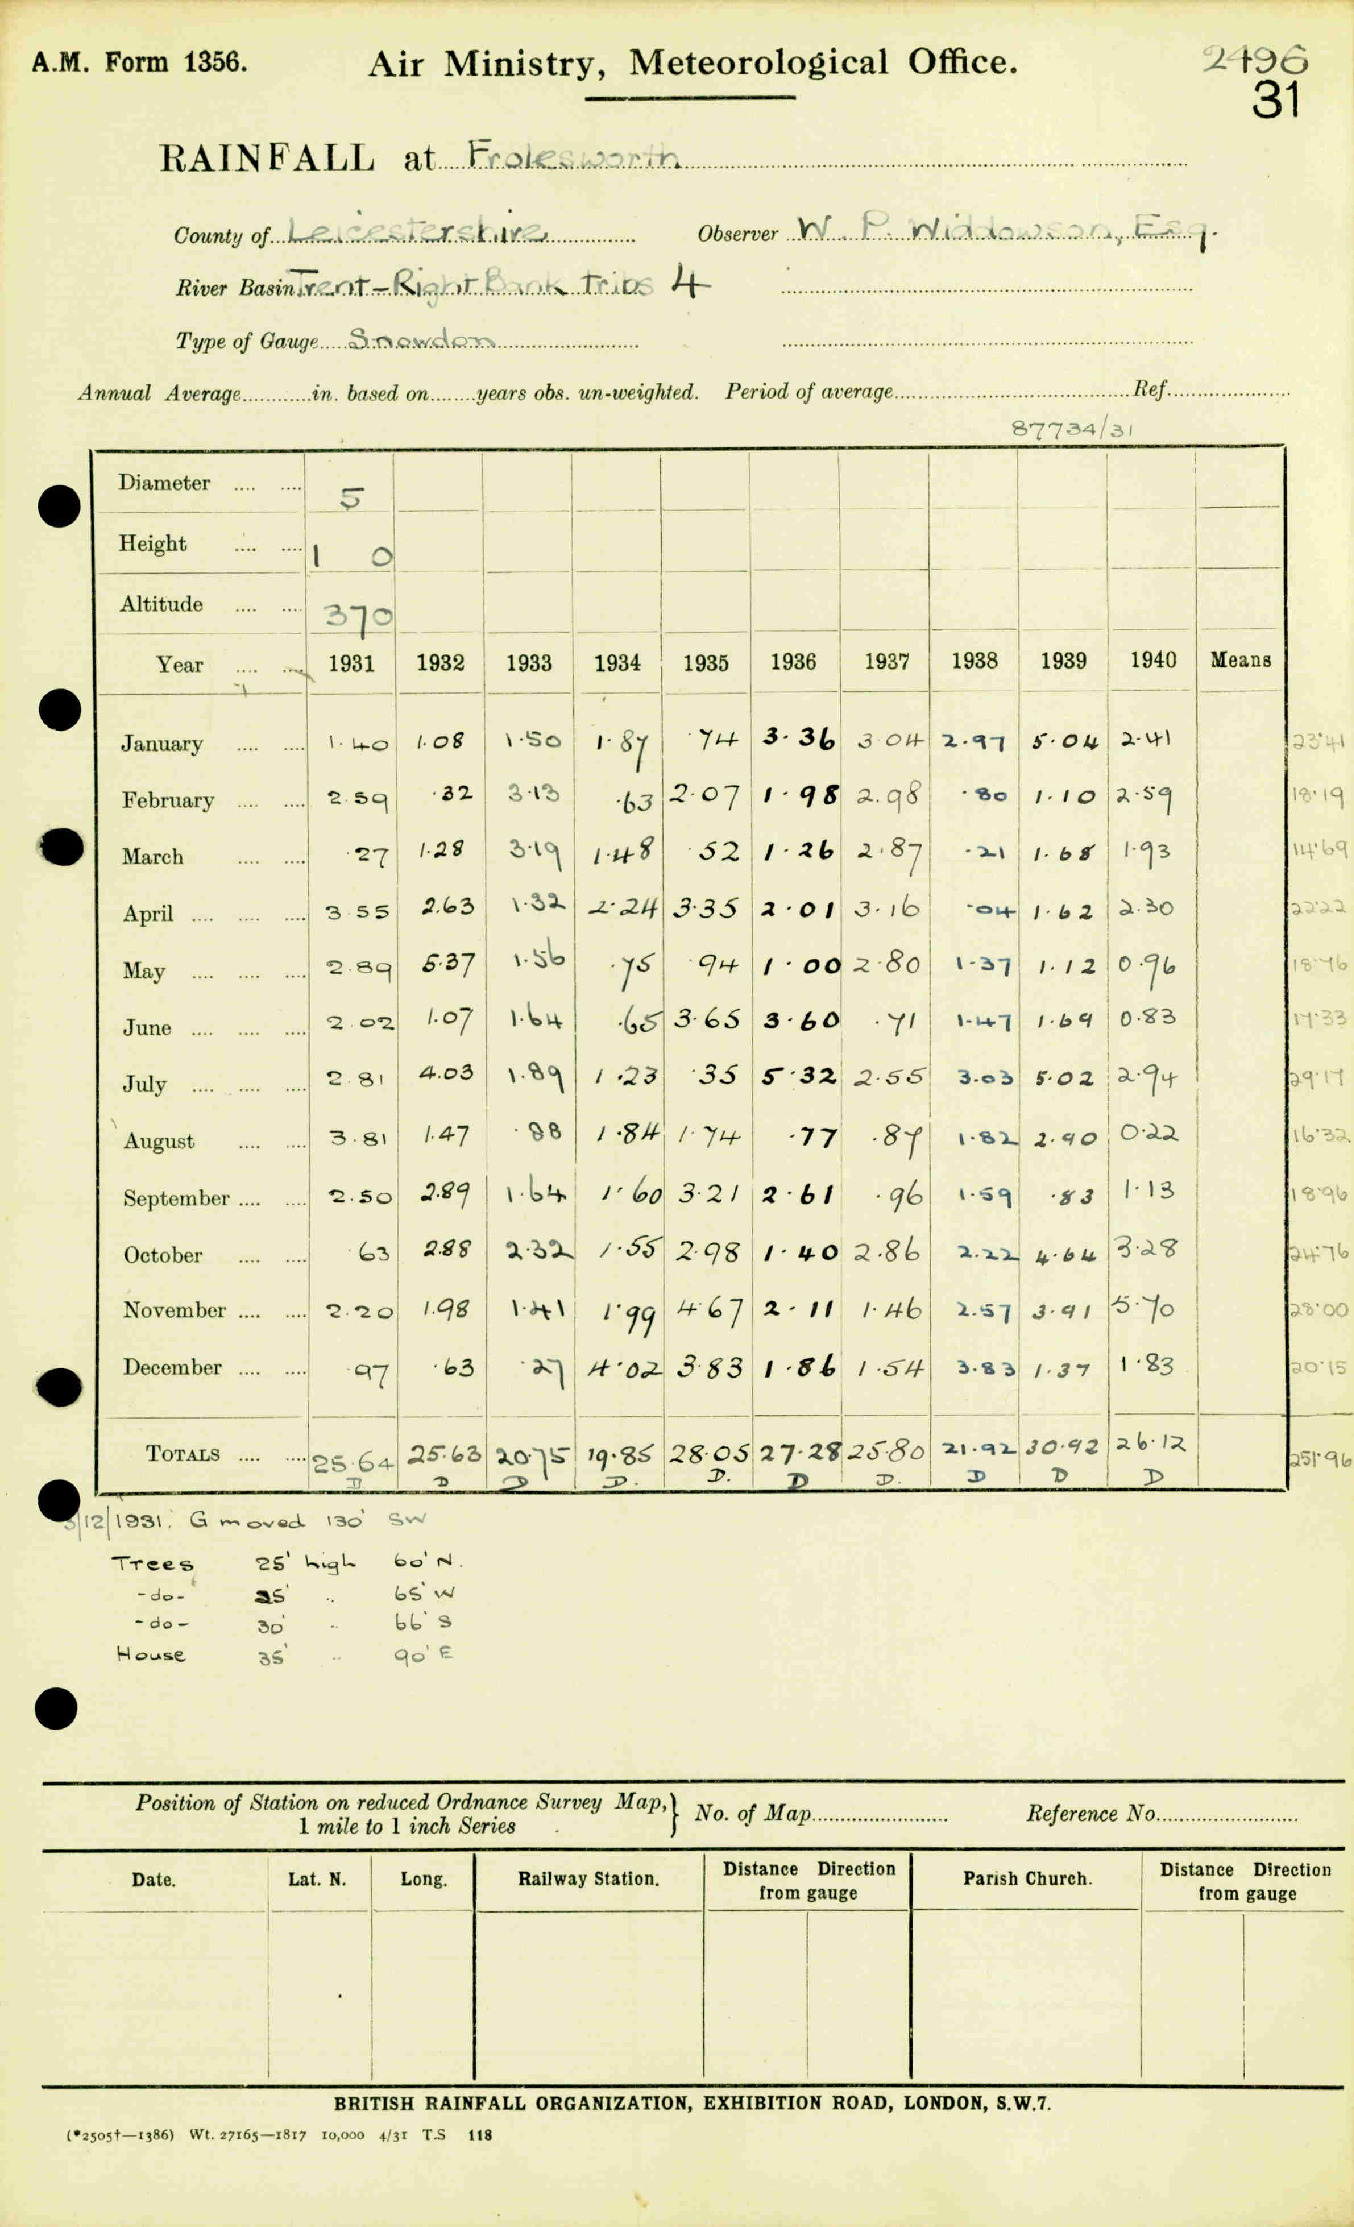 A.M. Form 1356. Air Ministry, Meteorological Office. 2496
31
RAINFALL at Frolesworth
County of Leicestershire Observer W. P. Widdowson, Esq.
River Basin Trent-Right Bank Tribs 4
Type of Gauge Snowdon
Annual Average in. based on years obs. un-weighted. Period of average Ref.
87734/31
Diameter 5
Height 1 0
Altitude 370
Year 1931 1932 1933 1934 1935 1936 1937 1938 1939 1940 Means
January 1.40 1.08 1.50 1.87 .74 3.36 3.04 2.97 5.04 2.41 23.41
February 2.59 .32 3.13 .63 2.07 1.98 2.98 .80 1.10 2.59 18.19
March .27 1.28 3.19 1.48 .52 1.26 2.87 .21 1.68 1.93 14.69
April 3.55 2.63 1.32 2.24 3.35 2.01 3.16 .04 1.62 2.30 22.22
May 2.89 5.37 1.56 .75 .94 1.00 2.80 1.37 1.12 0.96 18.76
June 2.02 1.07 1.64 .65 3.65 3.60 .71 1.47 1.69 0.83 17.33
July 2.81 4.03 1.89 1.23 .35 5.32 2.55 3.03 5.02 2.94 29.17
August 3.81 1.47 .88 1.84 1.74 .77 .87 1.82 2.90 0.22 16.32
September 2.50 2.89 1.64 1.60 3.21 2.61 .96 1.59 .83 1.13 18.96
October 63 2.88 2.32 1.55 2.98 1.40 2.86 2.22 4.64 3.28 24.76
November 2.20 1.98 1.41 1.99 4.67 2.11 1.46 2.57 3.91 5.70 28.00
December .97 .63 .27 4.02 3.83 1.86 1.54 3.83 1.37 1.83 20.15
TOTALS 25.64 25.63 20.75 19.85 28.05 27.28 25.80 21.92 30.92 26.12 251.96
D D D D. D. D D. D D D
/12/1931. G moved 130' SW
Trees 25' high 60' N.
-do- 25' " 65' W
-do- 30' " 66' S
House 35' " 90' E
Position of Station on reduced Ordnance Survey Map,} No. of Map Reference No.
1 mile to 1 inch Series
Date. Lat. N. Long. Railway Station. Distance Direction from gauge Parish Church. Distance Direction from gauge
BRITISH RAINFALL ORGANIZATION, EXHIBITION ROAD, LONDON, S.W.7.
(*2505†—1386) Wt. 27165—1817 10,000 4/31 T.S 118